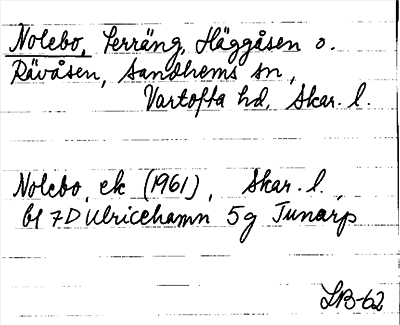 Nolebo, Serräng, Häggåsen o.
Rävåsen, Sandhems sn,
Vartofta hd, Skar. l.
Nolebo, ek (1961), Skar. l.,
bl 7D Ulricehamn 5g Tunarp
LB-62